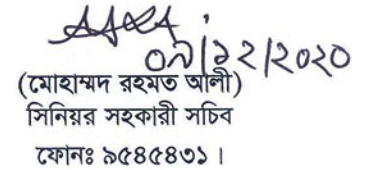 ০৯/১২/২০২০
(মোহাম্মদ রহমত আলী)
সিনিয়র সহকারী সচিব
ফোনঃ ৯৫৪৫৪৩১ ।